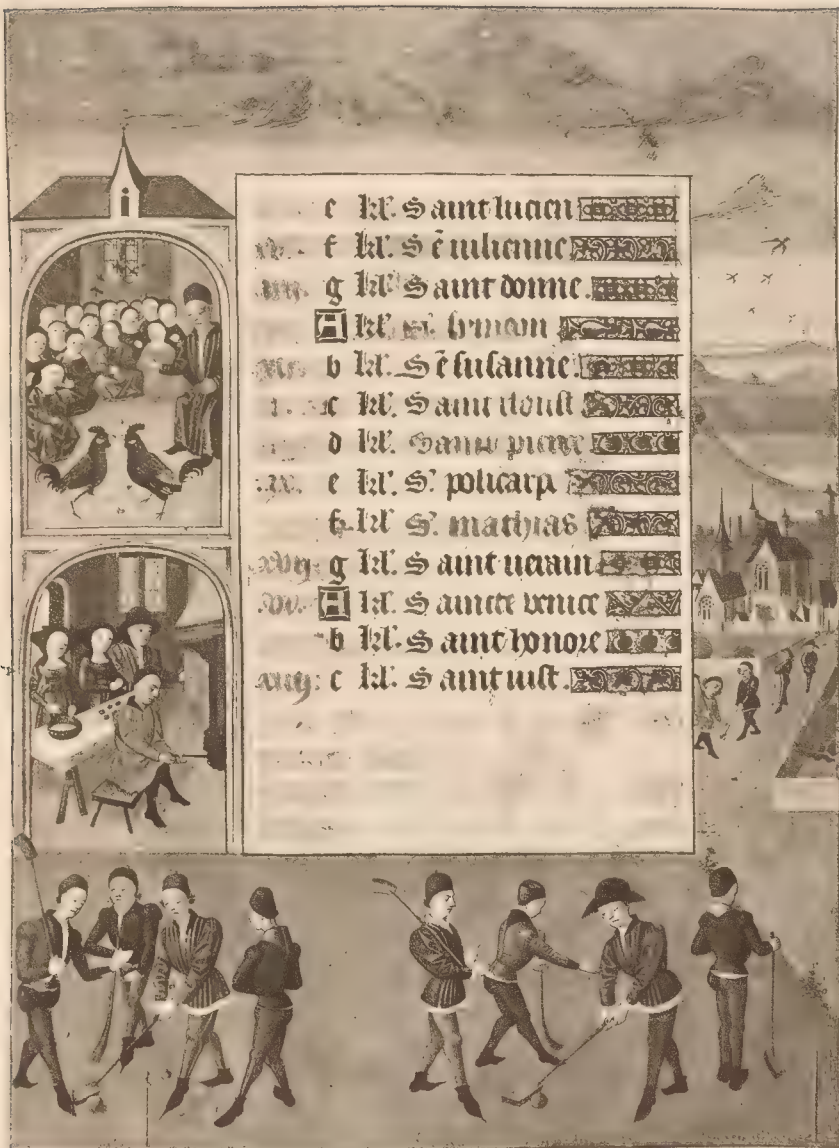 e kl'. Saint lucien
f kl'. Sē iulienne
g kl' Saint donne.
A kl'. simeon
b kl'. Sē susanne.
c kl'. Saint
d kl'. Saint pierre.
e kl'. S'. policarpe
f kl' S'. mathias
g kl'. Saint
A kl'. Saincte venice
b kl'. Saint honore
c kl'. Saint iust.